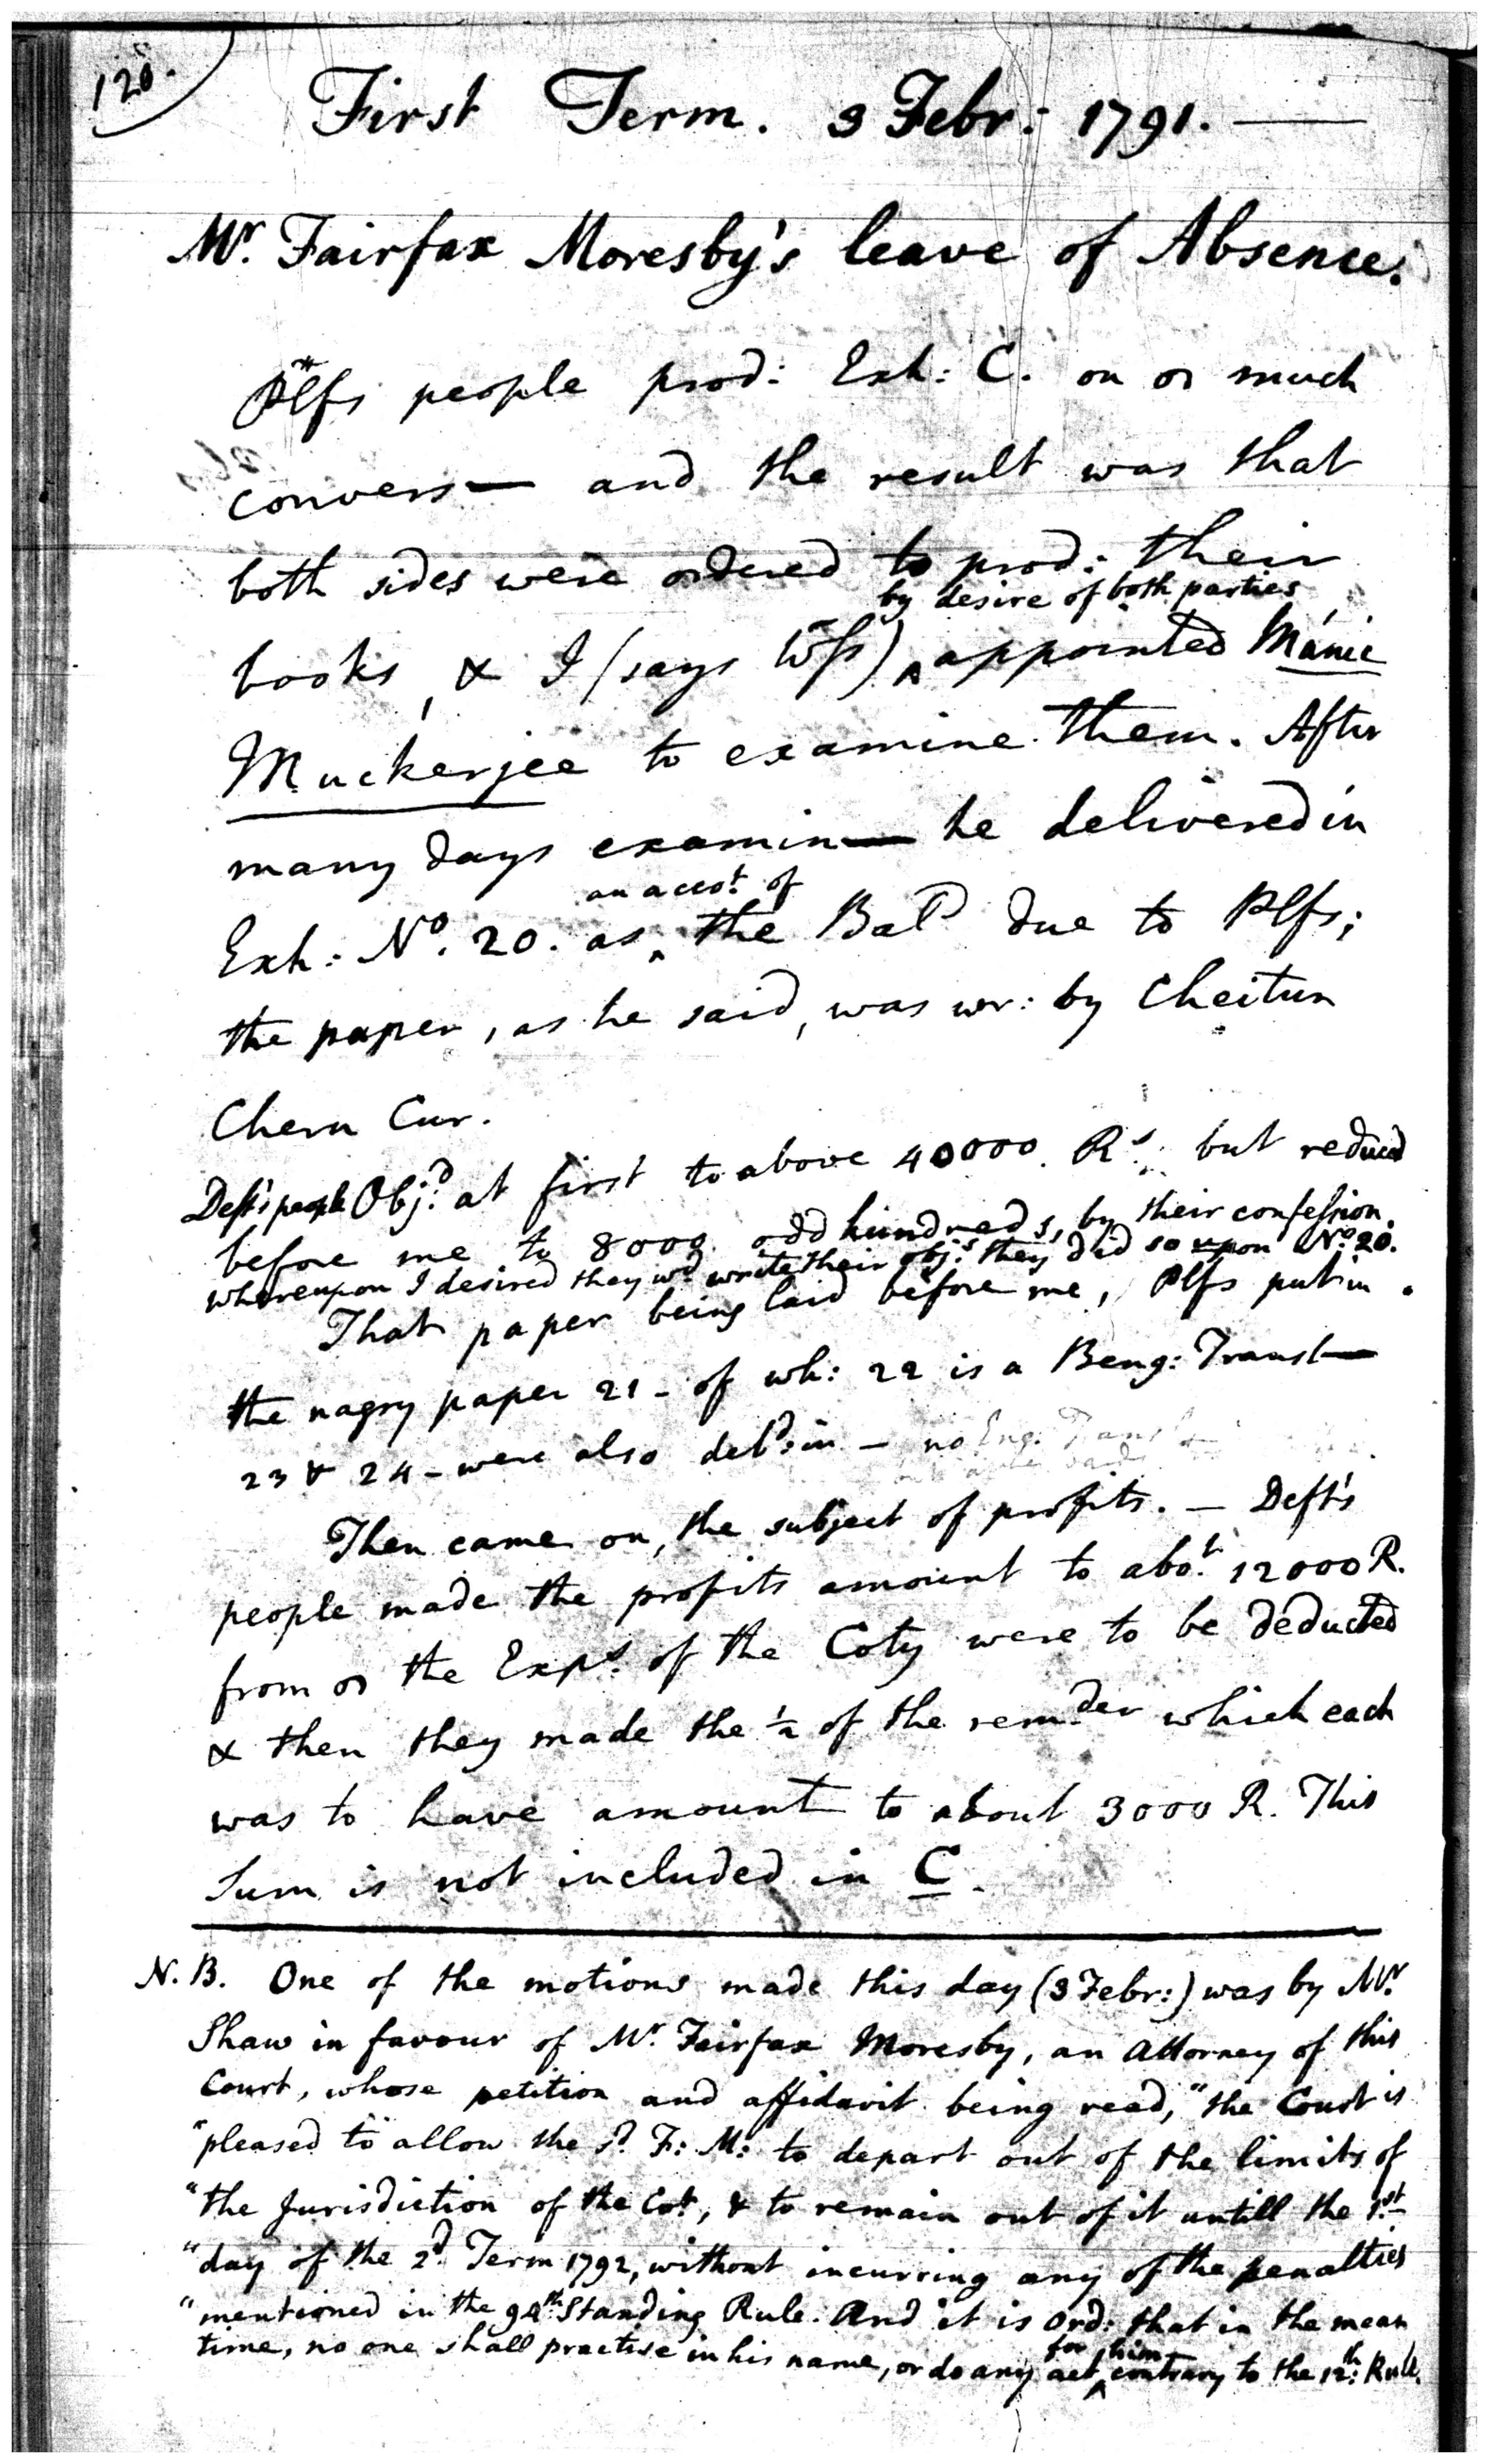 120.
First Term. 3 Febr: 1791.
Mr. Fairfax Moresby's leave of Absence.
Plfs people prod: Exh: C. on much
convers— and the result was that
both sides were ordered to prod: their
by desire of both parties
books, & I (says Wss) ^ appointed Mánic
Muckerjee to examine them. After
many days examin— he delivered in
an accot. of
Exh: No. 20. as ^ the Bal due to Plfs;
the paper, as he said, was wr: by Cheitun
Chern Cur.
Deft's people Obj:d at first to above 40000. Rs. but reduced
before me to 8000 odd hundreds, by their confession.
whereupon I desired they wd. write their obj:s they did so upon No. 20.
That paper being laid before me, Plfs put in
the nagry paper 21 - of wh: 22 is a Beng: Transl—
23 & 24 - were also deld: in - no Eng: Transl—
Then came on, the subject of profits. — Deft's
people made the profits amount to abot. 12000 R.
from the Exps. of the Coty were to be deducted
& then they made the ½ of the remder which each
was to have amount to about 3000 R. This
Sum is not included in C.
N.B. One of the motions made this day (3 Febr:) was by Mr.
Shaw in favour of Mr. Fairfax Moresby, an Attorney of this
Court, whose petition and affidavit being read, "the Court is
"pleased to allow the sd. F: M: to depart out of the limits of
"the Jurisdiction of the Cot, & to remain out of it untill the 1st.
"day of the 2d. Term 1792, without incurring any of the penalties
"mentioned in the 94th. Standing Rule. And it is Ord: that in the mean
for him
time, no one shall practise in his name, or do any act ^ contrary to the 12th: Rule.